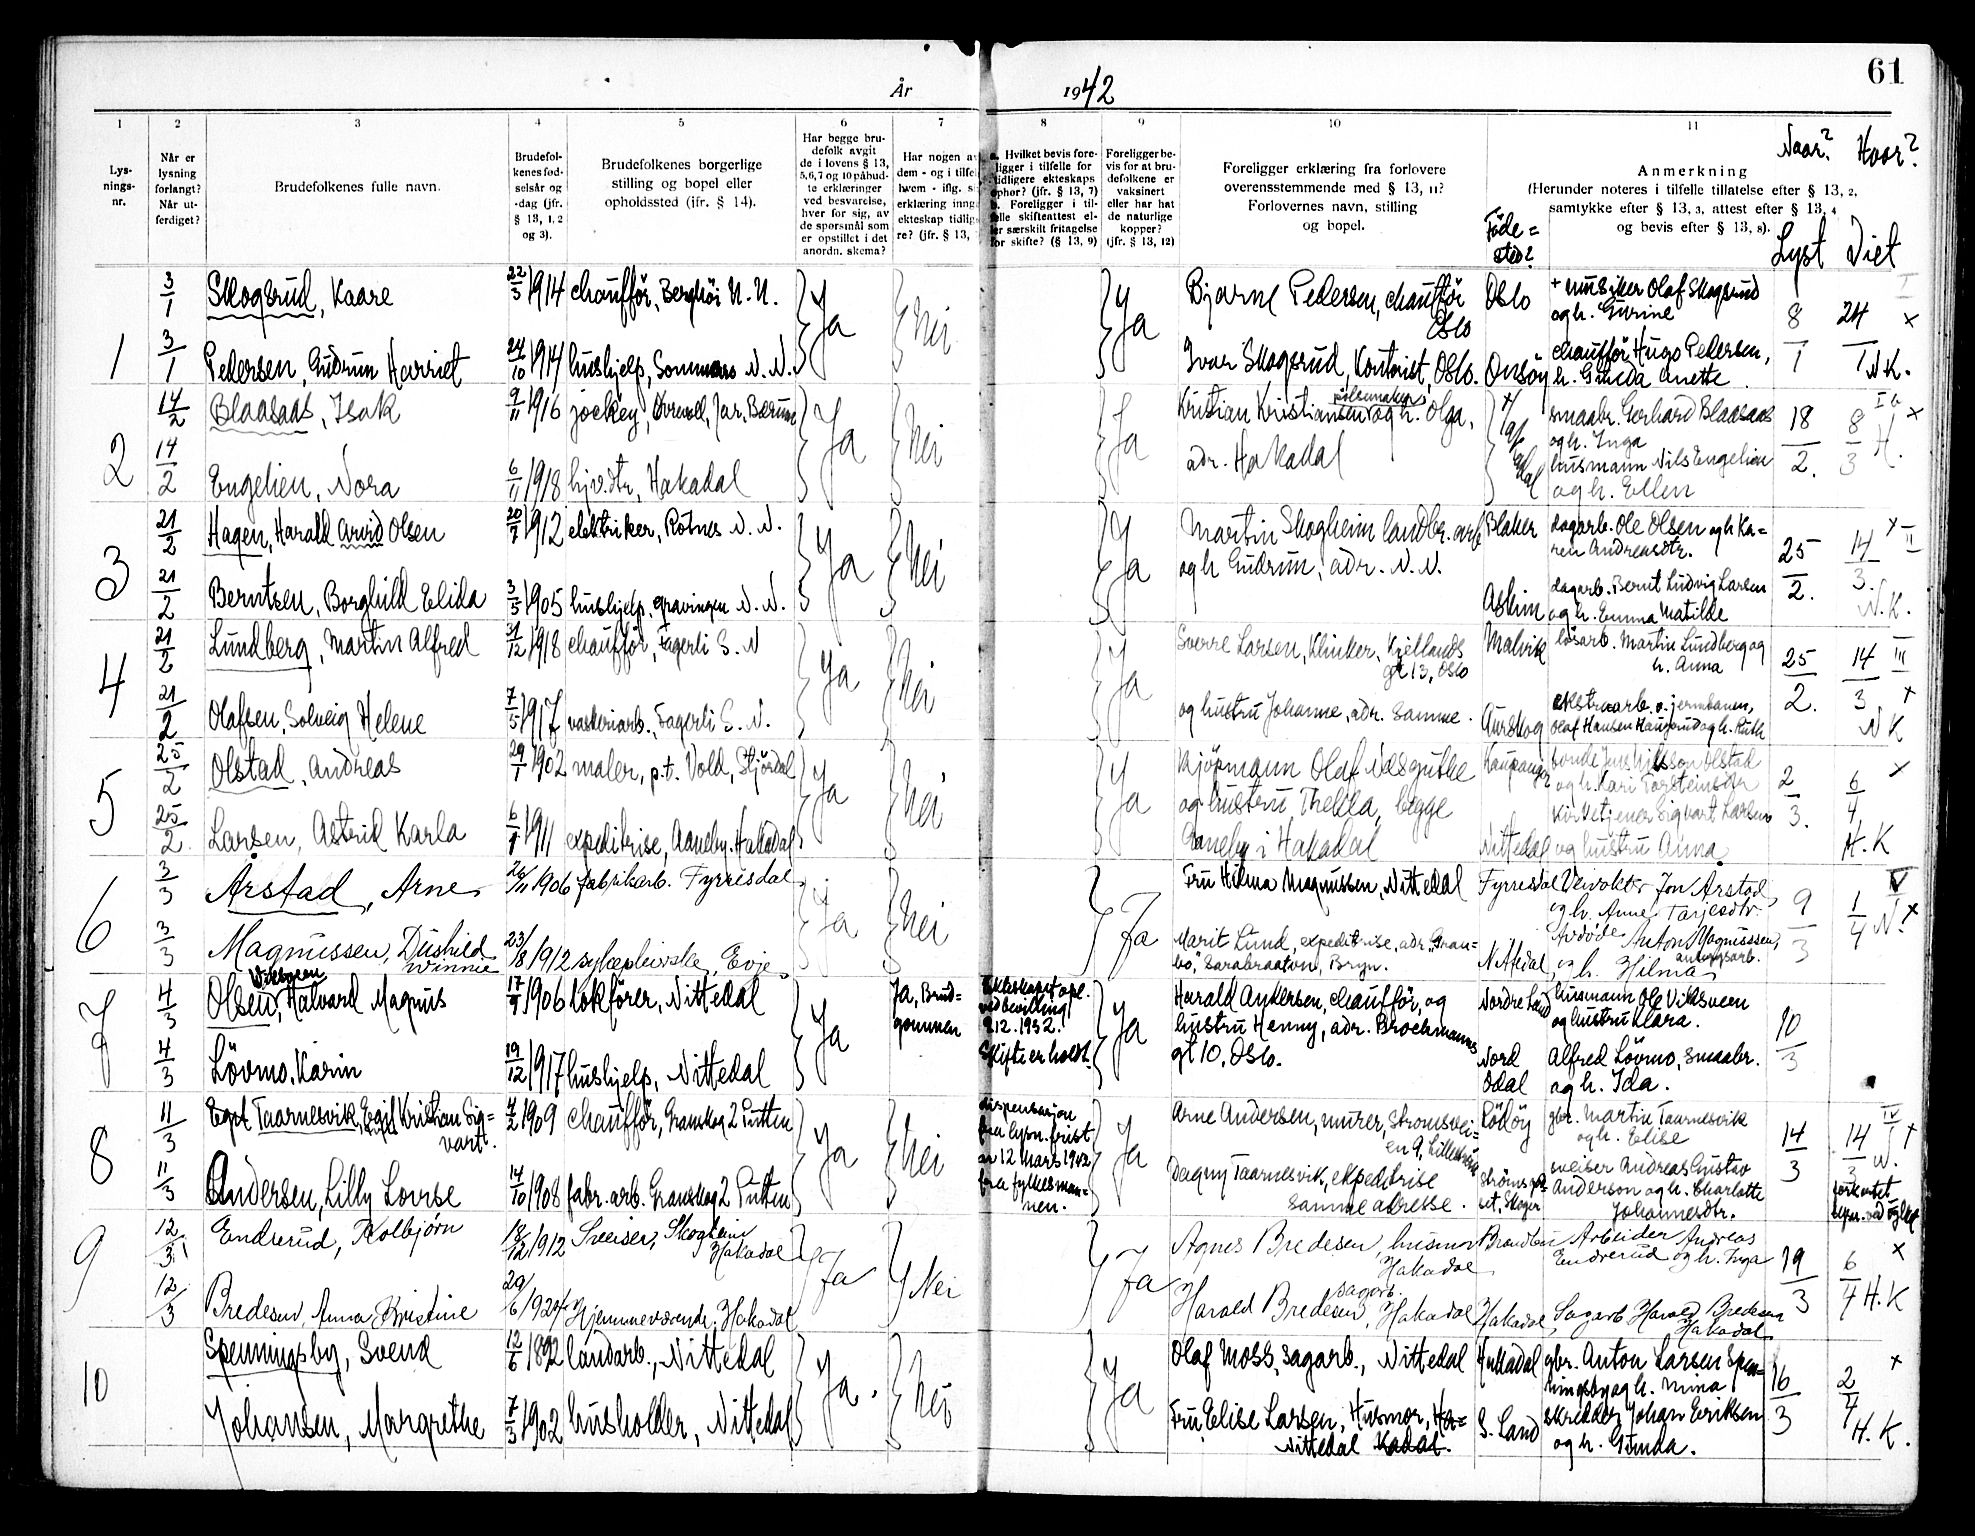 61
År 1942
1 2 3 4 5 6 7 8 9 10 11
Lys-
nings-
nr.
Når er
lysning
forlangt?
Når ut-
ferdiget?
Brudefolkenes fulle navn.
Brudefol-
kenes fød-
selsår og
-dag (jfr.
§ 13, 1, 2
og 3).
Brudefolkenes borgerlige
stilling og bopel eller
opholdssted (jfr. § 14).
Har begge bru-
defolk avgit
de i lovens § 13,
5, 6, 7 og 10 påbud-
te erklæringer
ved besvarelse,
hver for sig, av
de spørsmål som
er opstillet i det
anordn. skema?
Har nogen a
dem - og i tilfe
hvem - iflg. s
erklæring inng
ekteskap tidlig
re? (jfr. § 13,
a. Hvilket bevis fore-
ligger i tilfelle for
tidligere ekteskaps
ophør? (jfr. § 13, 7)
b. Foreligger i til-
felle skifteattest el-
ler særskilt fritagelse
for skifte? (§ 13, 9)
Foreligger be-
vis for at bru-
defolkene er
vaksinert
eller har hat
de naturlige
kopper?
(jfr. § 13, 12)
Foreligger erklæring fra forlovere
overensstemmende med § 13, 11?
Forlovernes navn, stilling
og bopel.
Föde=
sted?
Anmerkning
(Herunder noteres i tilfelle tillatelse efter § 13, 2,
samtykke efter § 13, 3, attest efter § 13, 4
og bevis efter § 13, 8).
Naar? Hvor?
Lyst Viet
3/1 Skogsrud, Kaare 22/3 1914 chaufför, Berghöi N.N. Ja Nei Ja Bjarne Pedersen, chaufför Oslo Oslo + musiker Olaf Skogsrud og h. Gurine 8/1 24/1 I x
1 3/1 Pedersen, Gudrun Harriet 24/10 1914 hushjelp, N.N. Ivar Skogsrud, Kontorist, Oslo. Onsöy chaufför Hugo Pedersen, h. Anette N.K.
14/2 Blaasaas, Isak 9/11 1916 jockey, Jar, Bærum Ja Nei Ja Kristian Kristiansen pölsemaker og h. Olga, smaabr. Gerhard Blaasaas og h. Inga 18/2. 8/3 x H.
2 14/2 Engelien, Nora 6/11 1918 hj.v.dtr, Hakadal adr. Hakadal husmann Nils Engelien og h. Ellen
21/2 Hagen, Harald Arvid Olsen 20/7 1912 elektriker, Rotnes N.N. Ja Nei Ja Martin Skogheim landbr. arb. Blaker dagarb. Ole Olsen og h. Ka=ren Andreasdtr. 25/2. 14/3. x II
3 21/2 Berntsen, Borghild Elida 3/5 1905 hushjelp, gravingen N.N. og h. Gudrun, adr. N.N. Askim dagarb. Bernt Ludvig Larsen og h. Emma Matilde N.K.
21/2 Lundberg, Martin Alfred 31/12 1918 chaufför, Fagerli S.N Ja Nei Ja Sverre Larsen, Klinker, Kiellands gt 13, Oslo Malvik lösarb. Martin Lundberg og h. Anna 25/2. 14/3 III x
4 21/2 Olafsen, Solveig Helene 7/5 1917 vaskeriarb., Fagerli S.N. og hustru Johanne, adr. samme. Aurskog ekstraarb. v. jernbanen, Olaf Hansen og h. Ruth N K
25/2 Olstad, Andreas 29/1 1902 maler, p.t. Vold, Stjördal Ja Nei Ja Kjöpmann Olaf Næsgutke Kaupanger bonde Olstad og h. Kari Torsteinsdtr 2/3. 6/4. x
5 25/2. Larsen, Astrid Karla 6/1 1911 expeditrise, Aaneby, Hakadal og hustru Thelila, begge Aaneby i Hakadal Nittedal Kirketjener Sigvart Larsen og hustru Anna. H.K
3/3 Årstad, Arne 26/11 1906 fabrikarb. Fyrresdal Ja Nei Ja Fru Hilma Magnussen, Nittedal Fyrresdal Veivokter Jon Årstad og h. Anne Tarjesdtr. 9/3 1/4 IV N. x
6 3/3 Magnussen, Dushild Winnie 23/8 1912 sykepleierske, Evje Marit Lund, expeditrise, adr. "Gran-bo", Sarabraatvn, Bryn. Nittedal Avdöde Anton Magnussen, anleggsarb. og h. Hilma
4/3 Olsen, Viksveen Halvard Magnus 17/9 1906 lokförer, Nittedal Ja Ja, Brud=gommen Ekteskapet opl. ved bevilling 9.12.1932. Skifte er holdt. Ja Harald Andersen, chaufför, og Nordre Land husmann Ole Viksveen og hustru Klara. 10/3
7 4/3 Lövmo, Karin 19/12 1917 hushjelp, Nittedal hustru Henny, adr. Brochmanns gt 10, Oslo. Nord Odal Alfred Lövmo, smaabr. og h. Ida.
11/3 Taarnesvik, Egil Kristian Sig=vart. 4/2 1909 chaufför, Granskog 2 Putten Ja Nei dispensasjon fra lysn.frist av 12 mars 1942 fra fylkesman=nen. Ja Arne Andersen, murer, Strømsvei=en 9, Lilleström Rödöy gbr. Martin Taarnesvik og h. Elise 14/3 14/3 IV x N.
8 11/3 Andersen, Lilly Lovise 14/10 1908 fabr.arb. Granskog 2 Putten Dagny Taarnesvik, expeditrise samme adresse. Skoger sveiser Andreas Gustav Anderson og h. Charlotte Johannesdtr. forkortet
12/3 Endrerud, Kolbjørn 18/12 1912 Sveiser, Skogheim Hakadal Ja Nei Ja Agnes Bredesen, husmor Hakadal Brandbu Arbeider Andreas Endrerud og h. Inga 19/3 6/4 x H.K
9 12/3 Bredesen, Anna Kristine 29/6 1924 Hjemmeværende, Hakadal Harald Bredesen, sagarb. Hakadal Hakadal Sagarb Harald Bredesen Hakadal
Spenningsby, Svend 12/6 1892 landarb., Nittedal Ja. Nei Ja Olaf Moss, sagarb., Nittedal Hakadal gbr. Anton Larsen Spen=ningsby og h. Mina 16/3 2/4 x
10 Johansen, Margrethe 7/3 1902 husholder, Nittedal Fru Elise Larsen, Husmor, Ha=kadal. Nittedal S. Land skredder Johan Eriksen og h. Gunda. H.K.